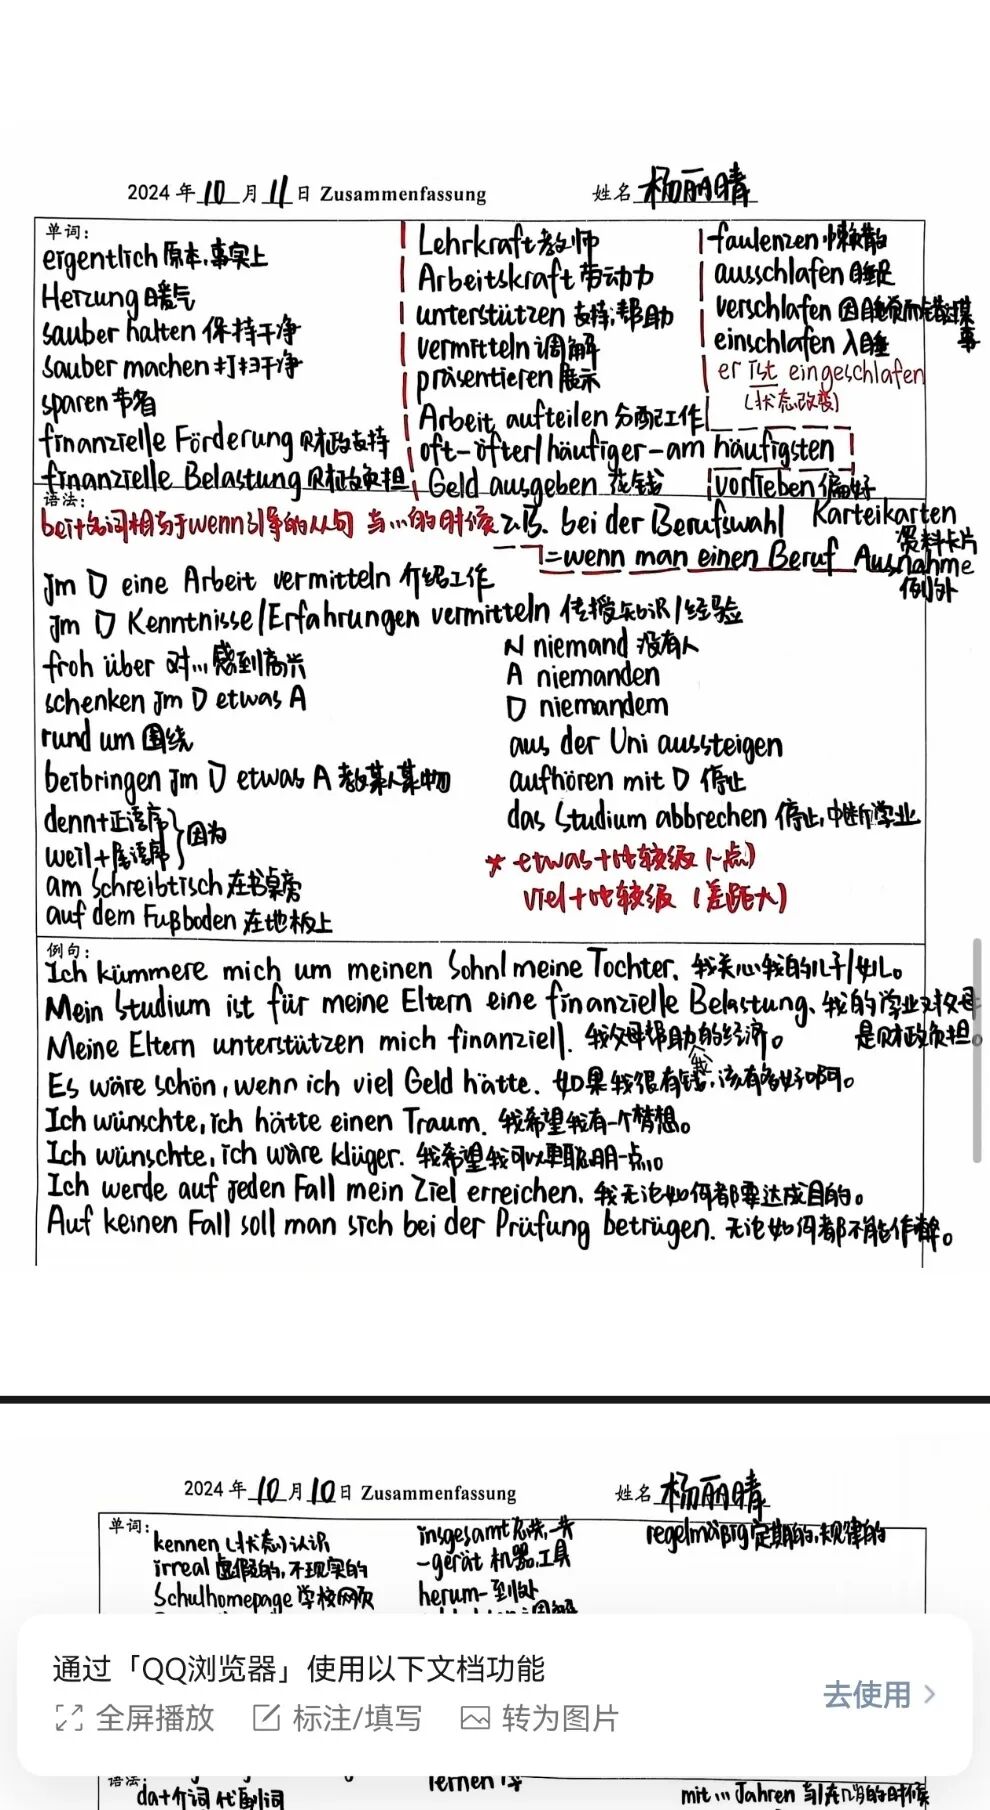 2024 年 10 月 11 日 Zusammenfassung 姓名 杨丽晴
单词:
eigentlich 原本,事实上
Heizung 暖气
sauber halten 保持干净
sauber machen 打扫干净
sparen 节省
finanzielle Förderung 财政支持
finanzielle Belastung 财政负担
Lehrkraft 教师
Arbeitskraft 劳动力
unterstützen 支持,帮助
vermitteln 调解
präsentieren 展示
Arbeit aufteilen 分配工作
oft-öfter/häufiger-am häufigsten
Geld ausgeben 花钱
faulenzen 懒散
ausschlafen 睡足
verschlafen 因睡觉而错过某事
einschlafen 入睡
er ist eingeschlafen
(状态改变)
vorlieben 偏好
语法:
bei+名词相当于wenn引导的从句 当...的时候 z.B. bei der Berufswahl
=wenn man einen Beruf
Karteikarten
资料卡片
Ausnahme
例外
jm D eine Arbeit vermitteln 介绍工作
jm D Kenntnisse/Erfahrungen vermitteln 传授知识/经验
froh über 对...感到高兴
schenken jm D etwas A
rund um 围绕
beibringen jm D etwas A 教某人某物
denn+正语序
weil+尾语序
因为
am Schreibtisch 在书桌旁
auf dem Fußboden 在地板上
N niemand 没有人
A niemanden
D niemandem
aus der Uni aussteigen
aufhören mit D 停止
das Studium abbrechen 停止,中断学业
* etwas+比较级 (一点)
viel+比较级 (差距大)
例句:
Ich kümmere mich um meinen Sohn/meine Tochter. 我关心我的儿子/女儿。
Mein Studium ist für meine Eltern eine finanzielle Belastung. 我的学业对父母
是财政负担。
Meine Eltern unterstützen mich finanziell. 我父母帮助我的经济。
Es wäre schön, wenn ich viel Geld hätte. 如果我很有钱,该有多好啊。
Ich wünschte, ich hätte einen Traum. 我希望我有一个梦想。
Ich wünschte, ich wäre klüger. 我希望我可以更聪明一点。
Ich werde auf jeden Fall mein Ziel erreichen. 我无论如何都要达成目的。
Auf keinen Fall soll man sich bei der Prüfung betrügen. 无论如何都不能作弊。
2024 年 10 月 10 日 Zusammenfassung 姓名 杨丽晴
单词:
kennen (状态)认识
irreal 虚假的,不现实的
Schulhomepage 学校网页
insgesamt 总共,一共
-gerät 机器,工具
herum- 到处
regelmäßig 定期的,规律的
通过「QQ浏览器」使用以下文档功能
全屏播放 标注/填写 转为图片
去使用
语法:
da+介词 代副词
lernen
mit ... Jahren 当在几岁的时候